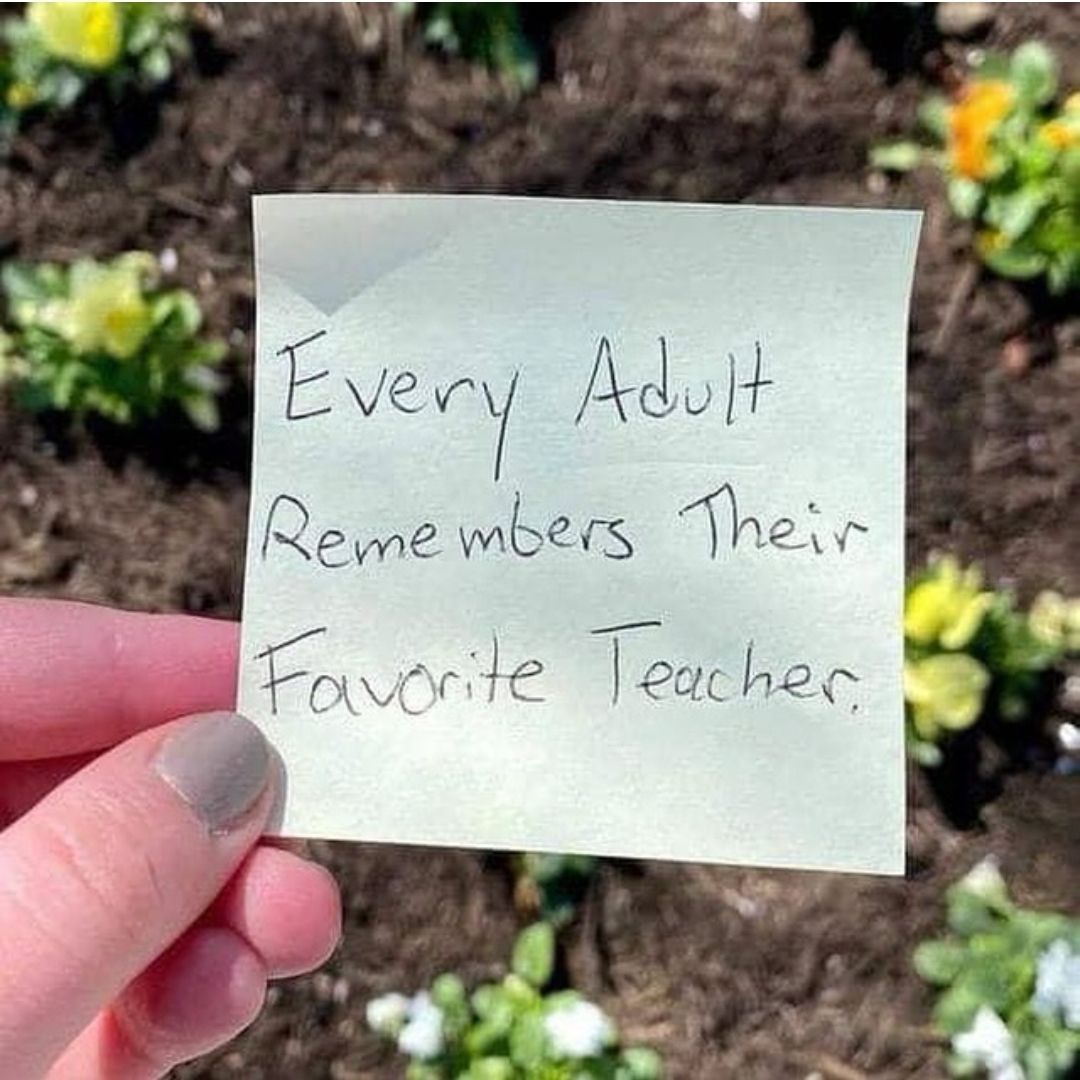 Every Adult
Remembers Their
Favorite Teacher.